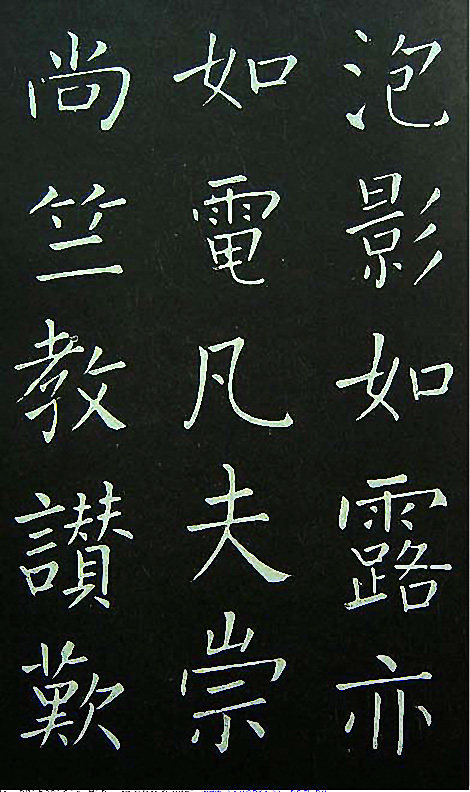 泡影如露亦
如電凡夫崇
尚竺教讃歎